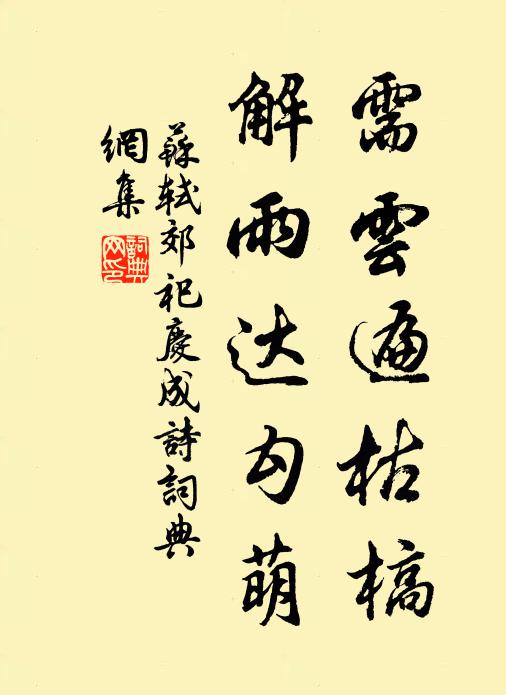 需雲遍枯槁
解雨达勾萌
蘇軾郊祀慶成詩詞典
網集
詞典
网印